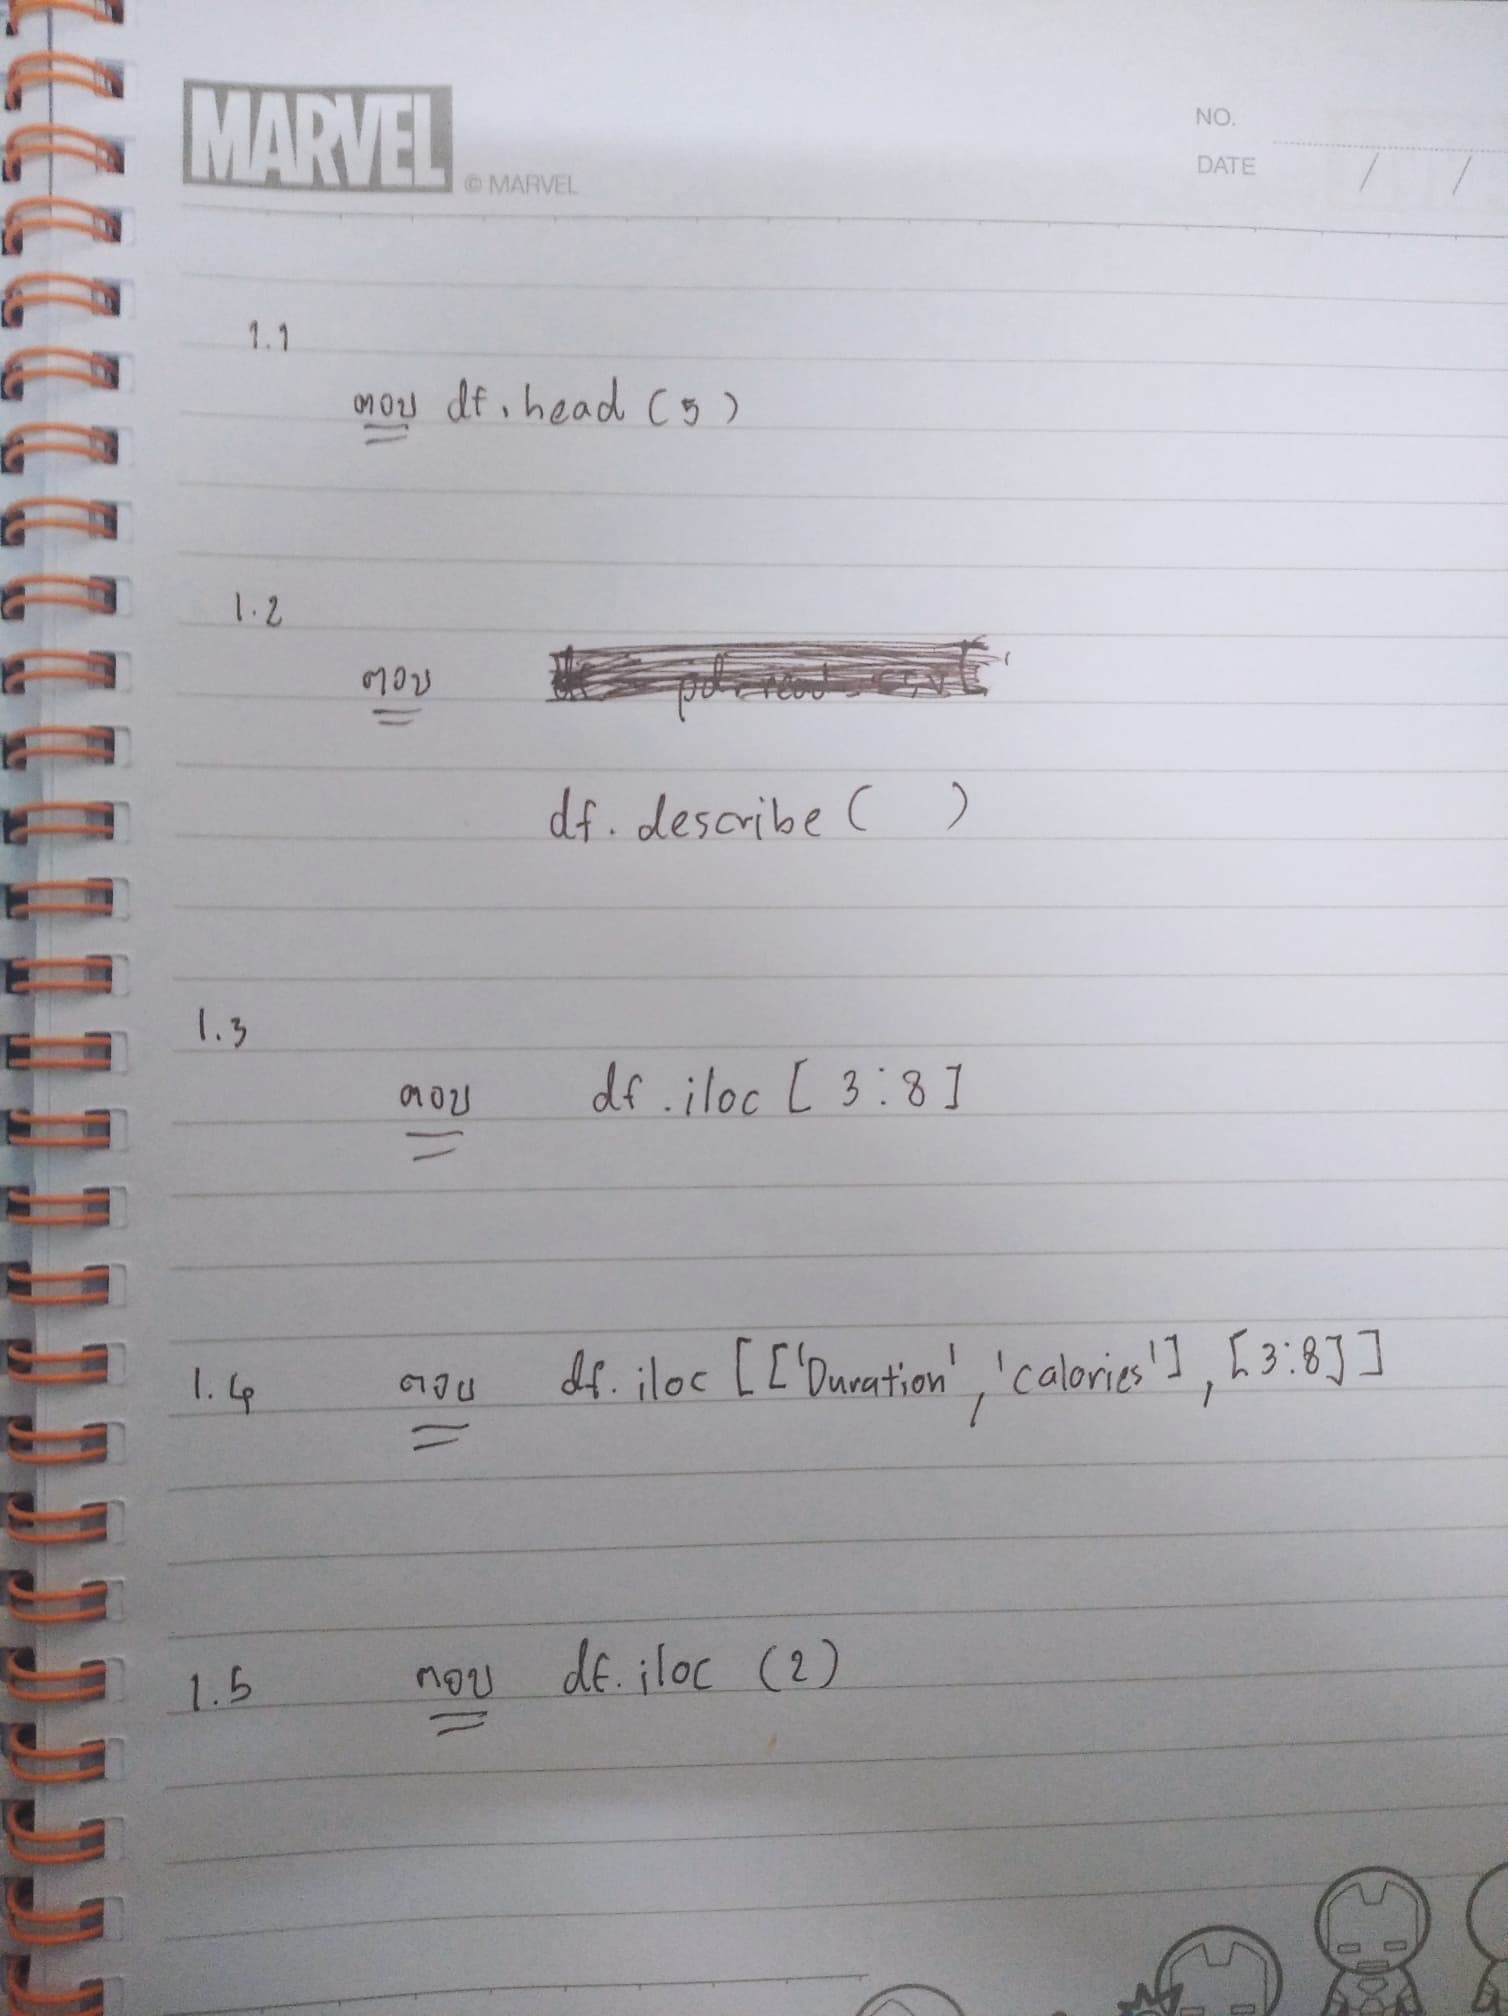 MARVEL
© MARVEL
NO.
DATE / /
1.1
ตอบ df.head (5)
1.2
ตอบ
df.describe ( )
1.3
ตอบ df.iloc [ 3:8]
1.4 ตอบ df.iloc [['Duration', 'calories'], [3:8]]
1.5 ตอบ df.iloc (2)